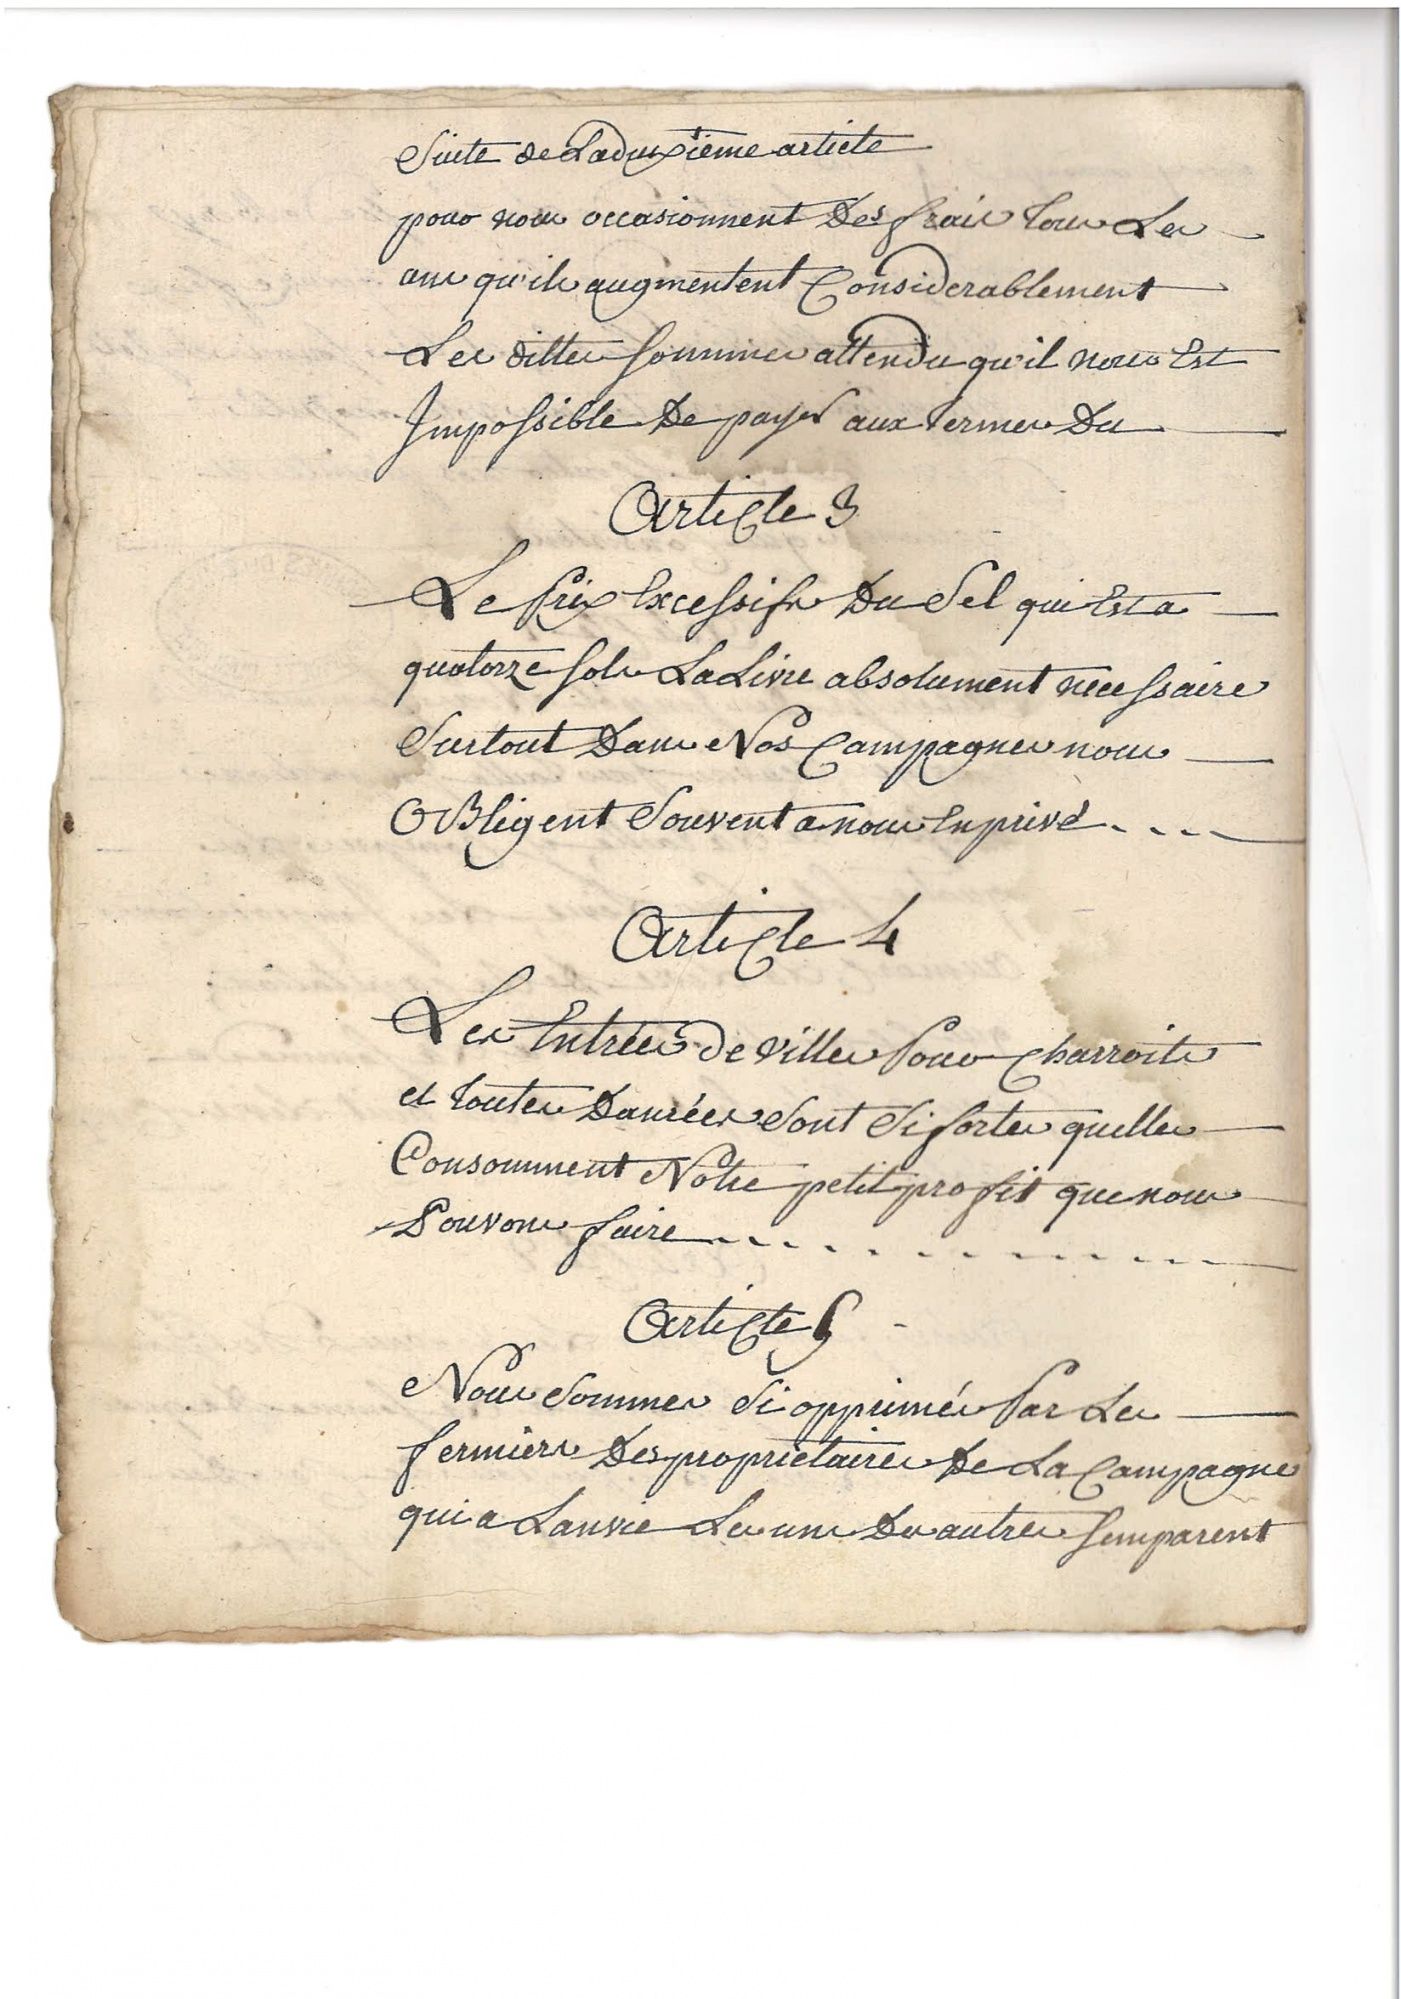 Suite de La deuxième article
pour nous occasionnent Des frais tous Les
ans qu'ils augmentent Considerablement
Les dittes sommes attendu qu'il nous Est
Impossible De payer aux termes Du
Article 3
Le Prix Excessifs Du Sel qui Est a
quatorze sols La Livre absolument necessaire
Surtout Dans Nos Campagnes nous
OBligent Souvent a nous En privé
Article 4
Les Entrées de villes Pour Charroits
et toutes Danrées Sont Si fortes quelles
Consomment Notre petit profit que nous
Pouvons faire
Article 5
Nous Sommes Si opprimés Par Les
fermiers Des proprietaires De La Campagne
qui a Lanvie Les uns Des autres semparent